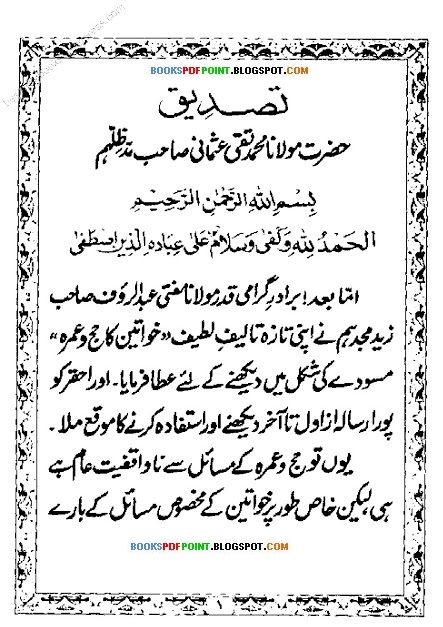 BOOKSPDFPOINT.BLOGSPOT.COM
تصدیق
حضرت مولانا محمد تقی عثمانی صاحب مدظلہم
بِسْمِ اللهِ الرَّحْمٰنِ الرَّحِيْمِ
اَلْحَمْدُ لِلّٰهِ وَكَفٰى وَسَلَامٌ عَلٰى عِبَادِهِ الَّذِيْنَ اصْطَفٰى
امّا بعد! برادرِ گرامی قدر مولانا مفتی عبدالرؤف صاحب
زید مجدہم نے اپنی تازہ تالیفِ لطیف "خواتین کا حج و عمرہ"
مسودے کی شکل میں دیکھنے کے لئے عطا فرمایا۔ اور احقر کو
پورا رسالہ از اول تا آخر دیکھنے اور استفادہ کرنے کا موقع ملا۔
یوں تو حج و عمرہ کے مسائل سے ناواقفیت عام ہے
ہی، لیکن خاص طور پر خواتین کے مخصوص مسائل کے بارے
BOOKSPDFPOINT.BLOGSPOT.COM
۱